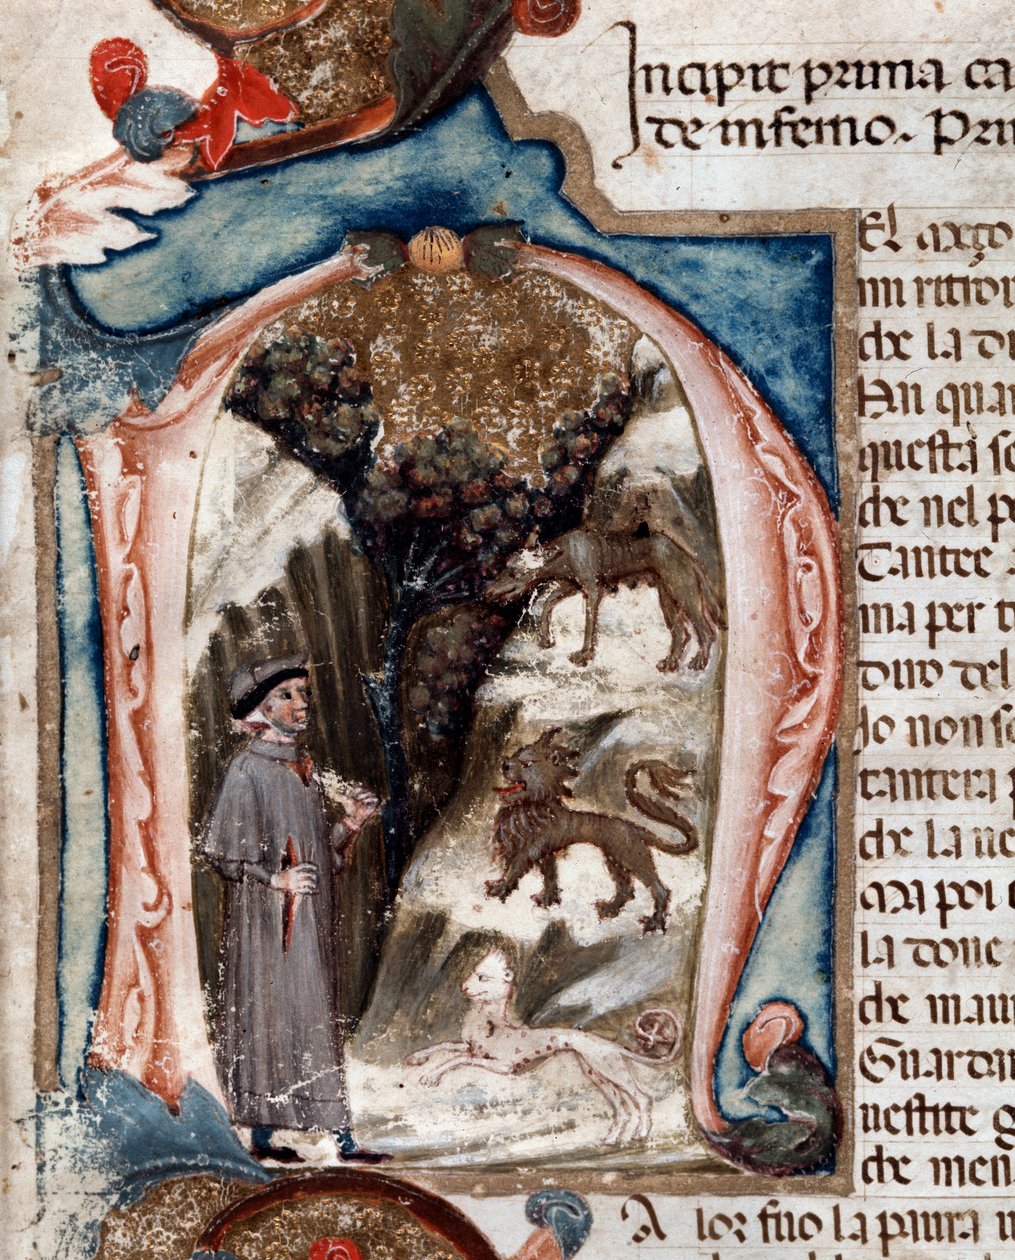 Incipit prima ca
de inferno. Prim
El
mi ritrou
che la di
Ahi quan
questa se
che nel p
Tant e
ma per t
diro del
Jo non so
tant era p
che la ue
Ma poi c
la doue
che mau
Guardai
uestite g
che men
A lor fuo la paura